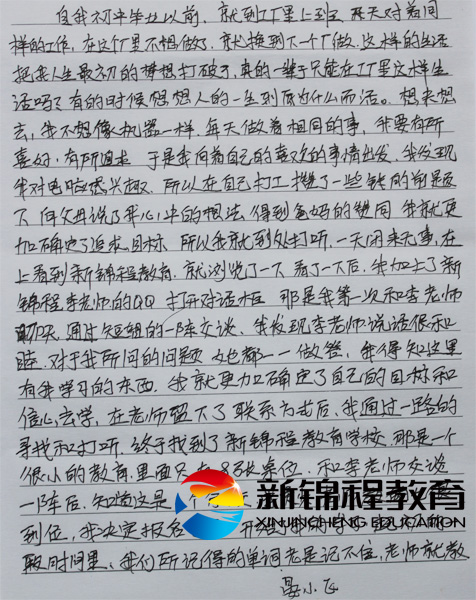 自我初中毕业以前，就到工厂里上班，每天对着同
样的工作，在这个厂里不想做了，就换到下一个厂做，这样的生活
把我人生最初的梦想打破了，真的一辈子只能在工厂里这样生
活吗？有的时候想想人的一生到底为什么而活。想来想
去，我不想像机器一样，每天做着相同的事，我要有所
喜好，有所追求 于是我向着自己的喜欢的事情出发，我发现
我对电脑感兴趣，所以在自己打工攒了一些钱的前提
下，向父母说了我心中的想法，得到爸妈的赞同，我就更
加确定了追求目标，所以我就到处打听，一天闲来无事，在
上看到新锦程教育，就浏览了一下，看了一下后，我加上了新
锦程李老师的QQ 打开对话框 那是我第一次和李老师
聊天，通过短短的一阵交谈，我发现李老师说话很和
睦，对于我所问的问题 她都一一做答，我得知这里
有我学习的东西，我就更加确定了自己的目标和
信心去学，在老师留下了联系方式后，我通过一路的
寻找和打听，终于找到了新锦程教育学校，那是一个
很小的教育，里面只有8张桌位，和李老师交谈
一阵后，知道这是一个
到位，我决定报名
段时间里、我们所记得的单词老是记不住，老师就教
晏小飞
新锦程教育